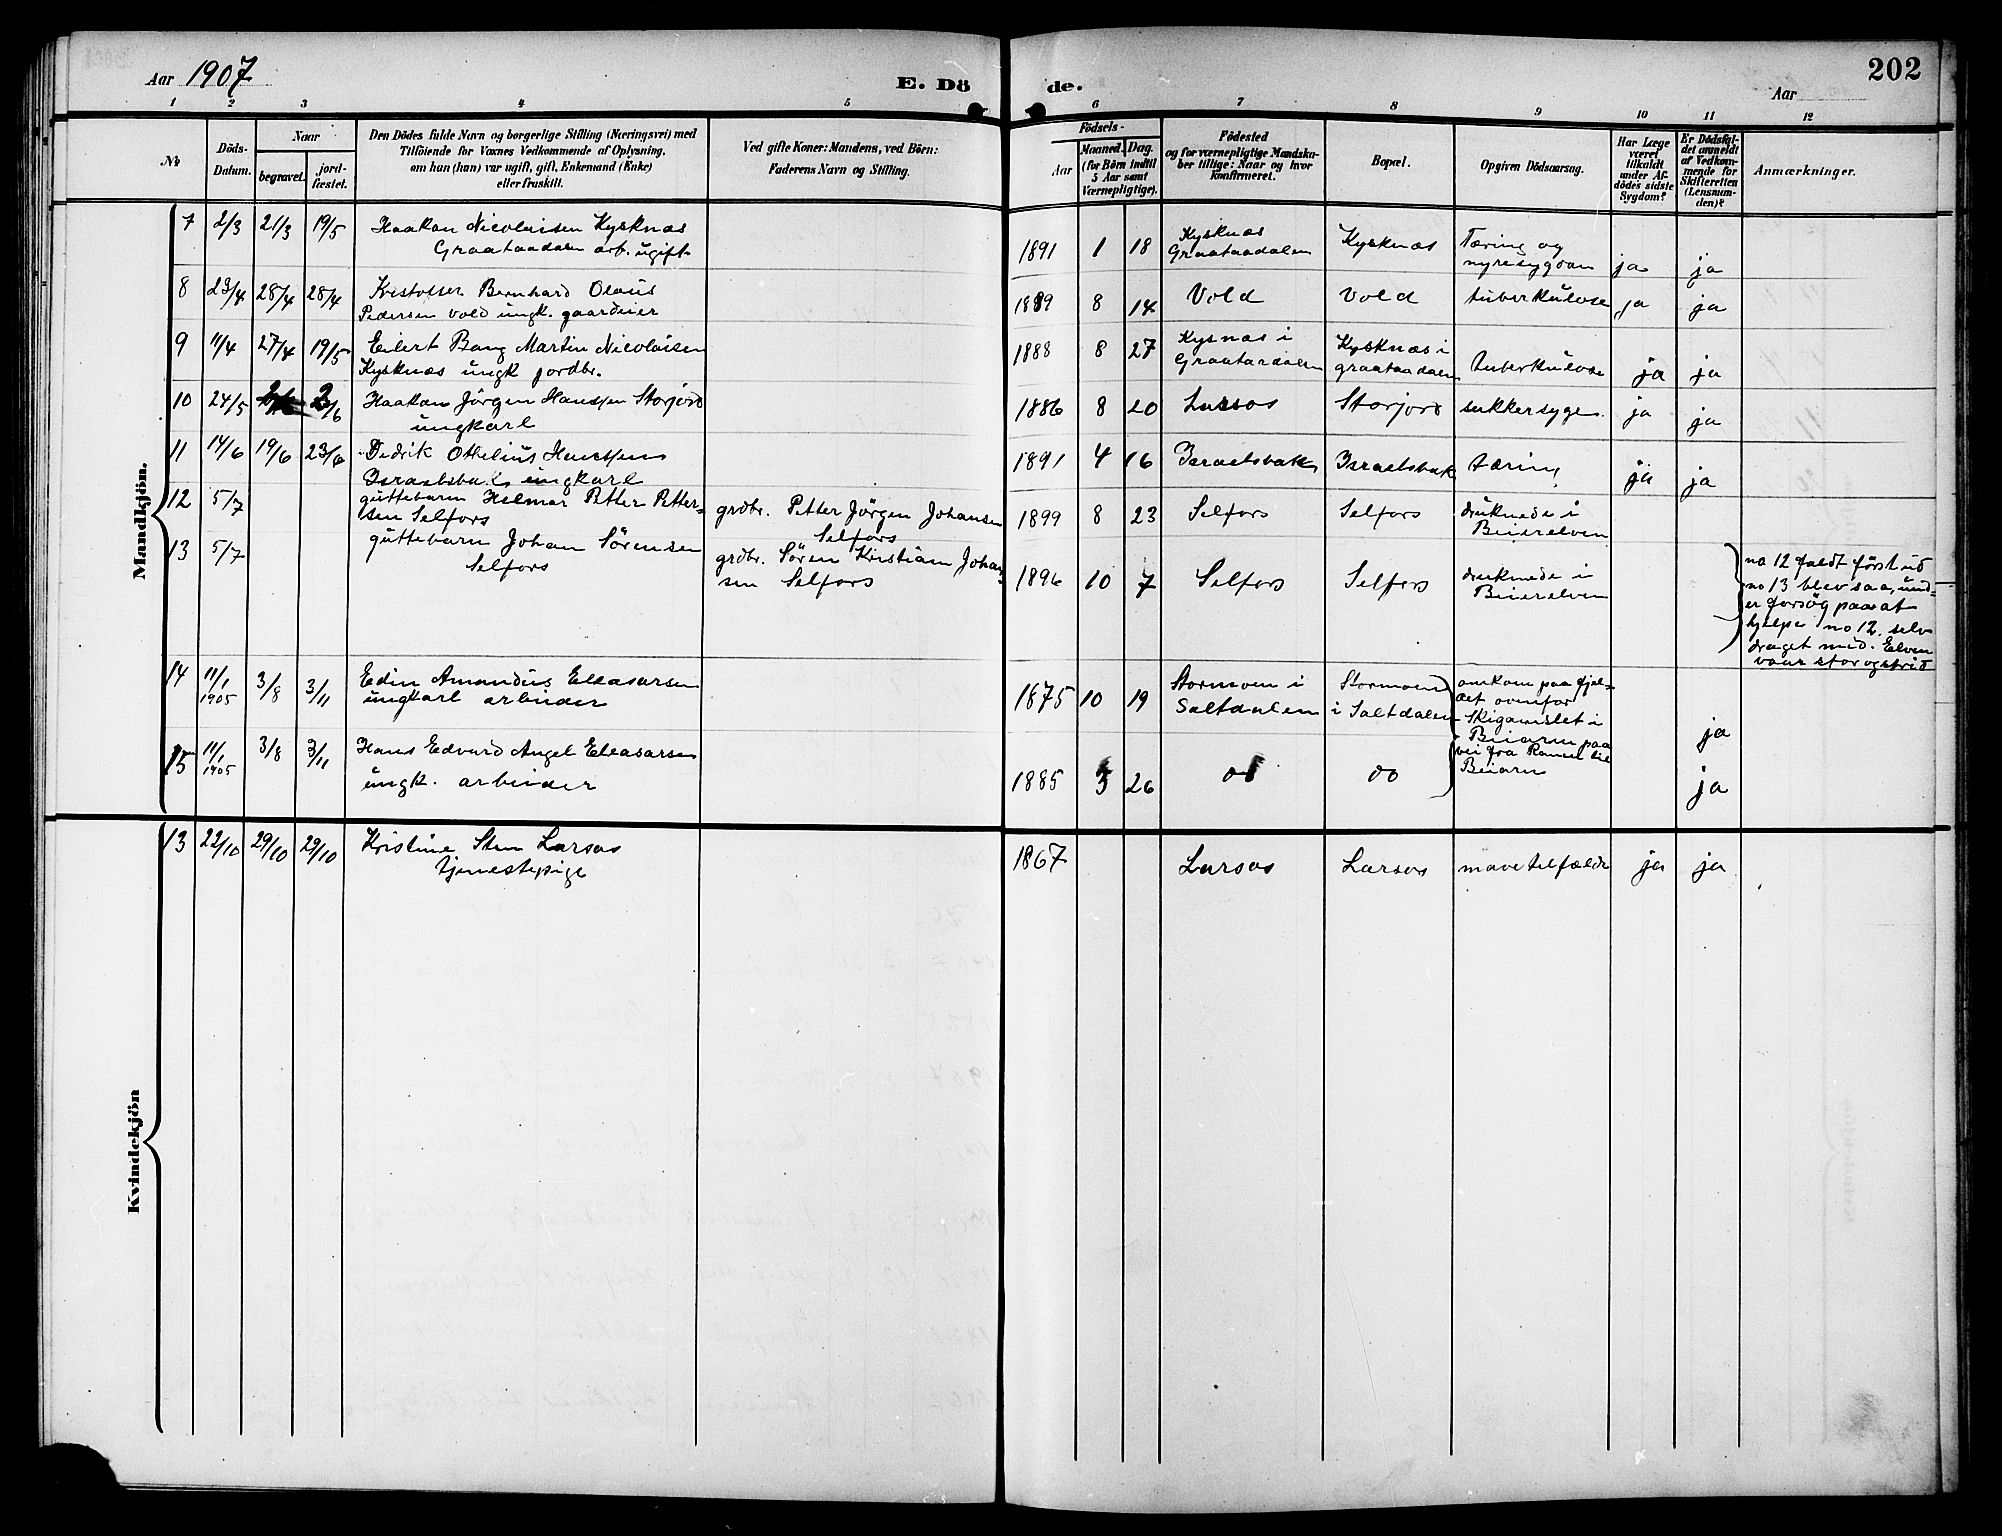 Aar 1907
E. Dö de.
Aar
202
1 2 3 4 5 6 7 8 9 10 11 12
No
Döds-
Datum.
Naar
begravet.
jord-
fæstet.
Den Dödes fulde Navn og borgerlige Stilling (Næringsvei) med
Tilföiende for Voxnes Vedkommende af Oplysning,
om han (hun) var ugift, gift, Enkemand (Enke)
eller fraskilt.
Ved gifte Koner: Mandens, ved Börn:
Faderens Navn og Stilling.
Födsels-
Aar
Maaned. Dag.
(for Börn indtil
5 Aar samt
Værnepligtige).
Födested
og for værnepligtige Mandska-
ber tillige: Naar og hvor
konfirmeret.
Bopæl.
Opgiven Dödsaarsag.
Har Læge
været
tilkaldt
under Af-
dödes sidste
Sygdom?
Er Dödsfal-
det anmeldt
af Vedkom-
mende for
Skifteretten
(Lensman-
den)?
Anmærkninger.
Mandkjön.
7 2/3 21/3 19/5 Haakon Nicolaisen Kysknæs
Graataadalen arb. ugift
1891 1 18 Kysknæs
Graataadalen
Kysknæs
Tæring og
nyresygdom
ja ja
8 23/4 28/4 28/4 Kristoffer Bernhard Olaus
Pedersen Vold ungk. gaardeier
1889 8 14 Vold Vold tuberkulose ja ja
9 11/4 27/4 19/5 Eilert Bang Martin Nicolaisen
Kysknæs ungk jordbr.
1888 8 27 Kysnæs i
Graataadalen
Kysknæs i
graataadalen
tuberkulose ja ja
10 24/5 2/6 Haakon Jörgen Hanssen Storjord
ungkarl
1886 8 20 Larsos Storjord sukkersyge. ja ja
11 14/6 19/6 23/6 Didrik Othelius Hanssen
Israelsbak ungkarl
1891 4 16 Israelsbakk Israelsbakk tæring ja ja
12 5/7 guttebarn Hilmar Petter Petter-
sen Selfors
grdbr. Petter Jörgen Johansen
Selfors
1899 8 23 Selfors Selfors druknede i
Beierelven
13 5/7 guttebarn Johan Sörensen
Selfors
grdbr. Sören Kristian Johan-
sen Selfors
1896 10 7 Selfors Selfors druknede i
Beierelven
no 12 faldt först ud
no 13 blev saa, und-
er forsög paa at
hjelpe no 12, selv
draget med. Elven
var stor og strid
14 11/1
1905
3/8 3/11 Edin Amandus Eleasarsen
ungkarl arbeider
1875 10 19 Stormoen i
Saltdalen
Stormoen
i Saltdalen
omkom paa fjel-
det ovenfor
Skigamslet i
Beiarn paa
vei fra Ranen til
Beiarn
ja
15 11/1
1905
3/8 3/11 Hans Edvard Angel Eleasarsen
ungk. arbeider
1885 3 26 do do ja
Kvindekjön
13 22/10 29/10 29/10 Kristine Sten Larsos
tjenestepige
1867 Larsos Larsos mavetilfælde ja ja